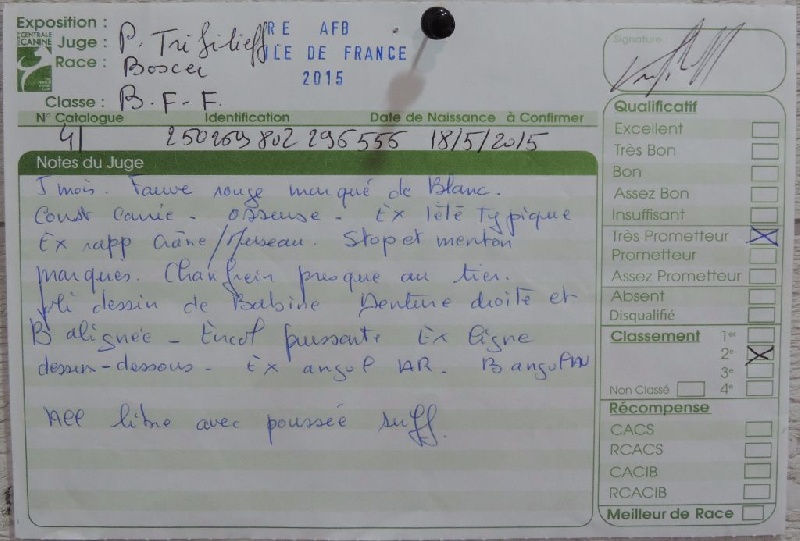 Exposition : RE AFB
CENTRALE CANINE
Juge : P. Trifilieff ILE DE FRANCE
Race : 2015
Classe : B.F.F.
N° Catalogue Identification Date de Naissance à Confirmer
41 250269802296555 18/5/2015
Notes du Juge
5 mois. Fauve rouge marqué de Blanc.
Const carrée - osseuse - Ex tête typique
Ex rapp Crâne/Museau. Stop et menton
marqués. Chanfrein presque au tier.
joli dessin de Babine Denture droite et
B alignée - Encol puissante Ex ligne
dessus-dessous - Ex angul AR. B angul AV
All libre avec poussée suff.
Signature
Qualificatif
Excellent
Très Bon
Bon
Assez Bon
Insuffisant
Très Prometteur X
Prometteur
Assez Prometteur
Absent
Disqualifié
Classement 1er
2e X
3e
Non Classé 4e
Récompense
CACS
RCACS
CACIB
RCACIB
Meilleur de Race